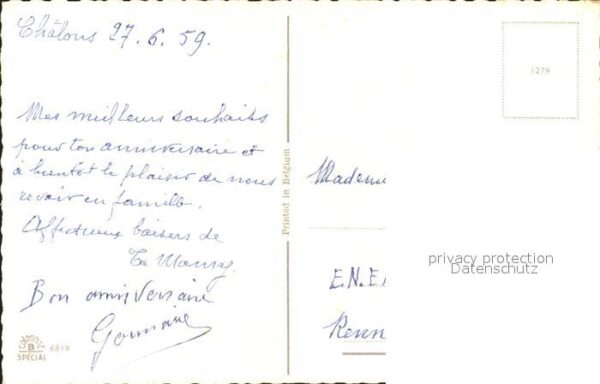 Châlons 27.6.59.
Mes meilleurs souhaits
pour ton anniversaire et
à bientôt le plaisir de nous
revoir en famille.
Affectueux baisers de
Bon anniversaire
Printed in Belgium
B
SPÉCIAL
6819
1279
Madame
privacy protection
Datenschutz
E.N.E